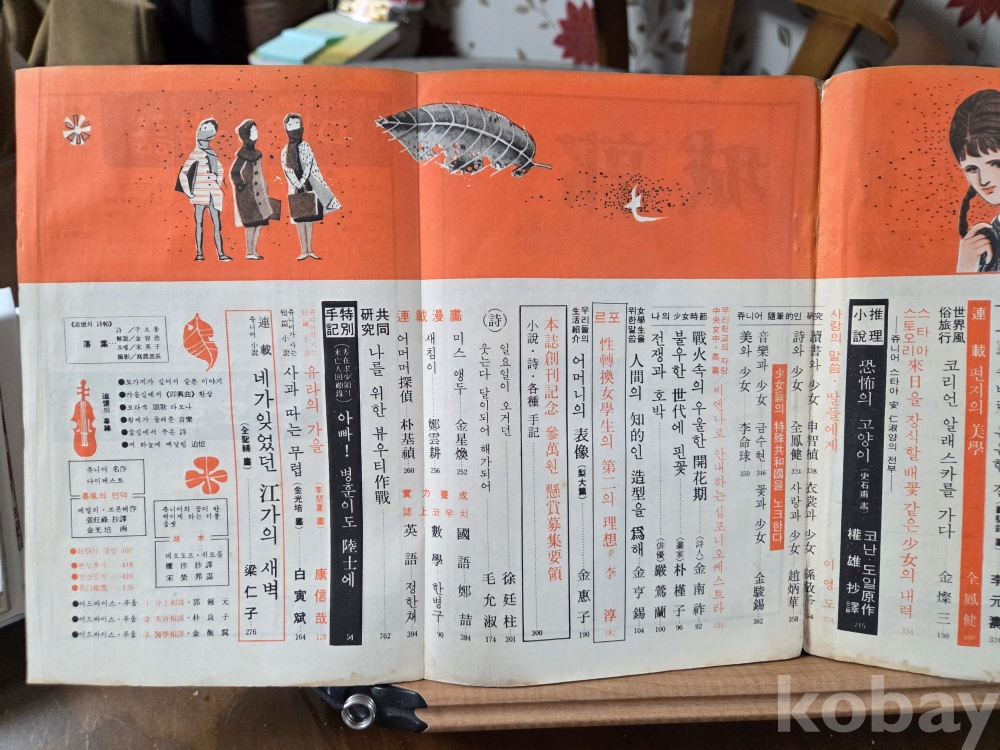 世界風俗旅行
코리언 알래스카를 가다
金燦三
150
連載 편지의 美學
全鳳健
스타아 來日을 장식할 배꽃 같은 少女의 내력
스토오리
쥬니어 스타아 安仁淑양의 전부
154
推理小說
恐怖의 고양이
(史石甫 畵)
코난·도일原作
權雄 抄譯
215
사랑의 말씀·딸들에게
이영도
쥬니어 隨筆的인 研究
讀書와 少女
申智植
338
衣裳과 少女
孫敬
詩와 少女
金鳳健
324
사랑과 少女
趙炳華
358
音樂과 少女
금수현
346
꽃과 少女
金駿錫
362
美와 少女
李命球
350
少女들의 特殊共和國을 노크한다
우리학교의 자랑
中央女中·高篇
비엔나로 안내하는 심포니오케스트라
나의 少女時節
戰火속의 우울한 開花期
(詩人) 金南祚
92
불우한 世代에 핀꽃
(畫家) 朴槿子
96
전쟁과 호박
(俳優) 嚴鶯蘭
100
女學生을 위한 말씀
人間의 知的인 造型을 爲해
金亨錫
104
포르
性轉換女學生의 第二의 理想
李淳
182
우리들의 生活紹介
어머니의 表像
(梨大篇)
金惠子
190
本誌創刊記念 參萬원 懸賞募集要領
小說·詩·各種 手記
300
(詩)
일요일이 오거던
徐廷柱
201
웃는다 달이되어 해가되어
毛允淑
174
連載漫畵
미스 앵두
金星煥
252
새침이
鄭雲耕
256
어머머探偵
朴基禎
260
實力養成
誌上코우치
國語
鄭喆
384
數學
한병구
390
英語
정한채
394
共同研究
나를 위한 뷰우티作戰
762
特別手記
아빠! 병훈이도 陸士에
54
쥬니어小說
유라의 가을
康信哉
128
사과 따는 무렵
(金光培 畵)
白寅斌
164
連載
쥬니어小說
네가잊었던 江가의 새벽
(全聖輔 畵)
梁仁子
276
《追憶의 詩帖》
落葉
詩/구르몽
解說/金容浩
撮影/萬圓部長
追憶의 車論
●보가지가 길어서 슬픈 이야기
●가을길에서 《即興曲》 환상
●보라색 頌歌 타오나
●황제가 들려준 音樂
●숲길에서 주운 詩
●저 하늘에 메달린 追憶
쥬니어 名作 다이제스트
暴風의 언덕
에밀리·브론테作
張旺綠 抄譯
金光培 画
쥬니어의 꿈이 반짝이게 하는 더블 옵셋
湖水
테오도르·쉬토름
權雄 抄譯
宋榮邦 畵
407
418
416
426
●어드바이스·루움 ① 身上相談·郭鍾元
●어드바이스·루움 ② 美容相談·朴良子
●어드바이스·루움 ③ 醫學相談·金衡翼
kobay